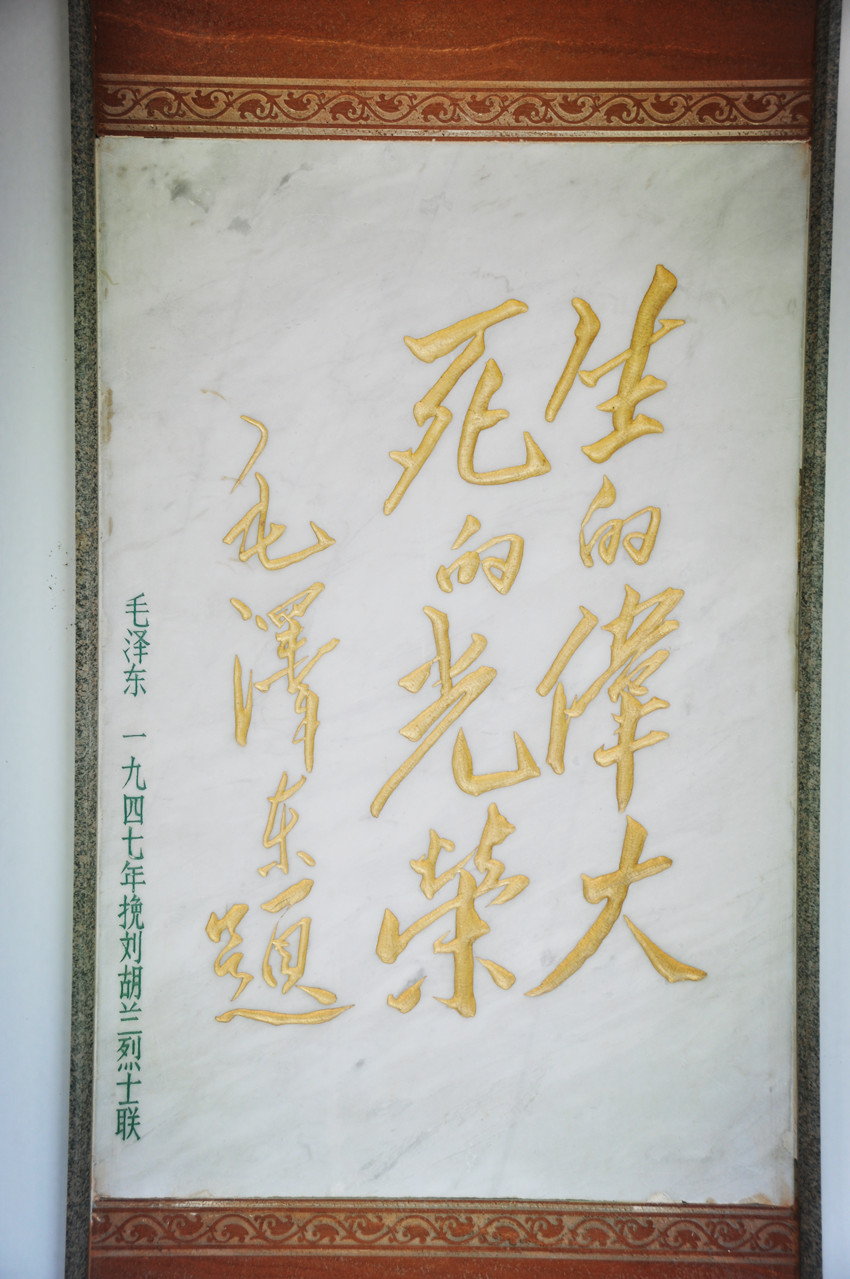 生的偉大
死的光榮
毛澤东題
毛泽东 一九四七年挽刘胡兰烈士联